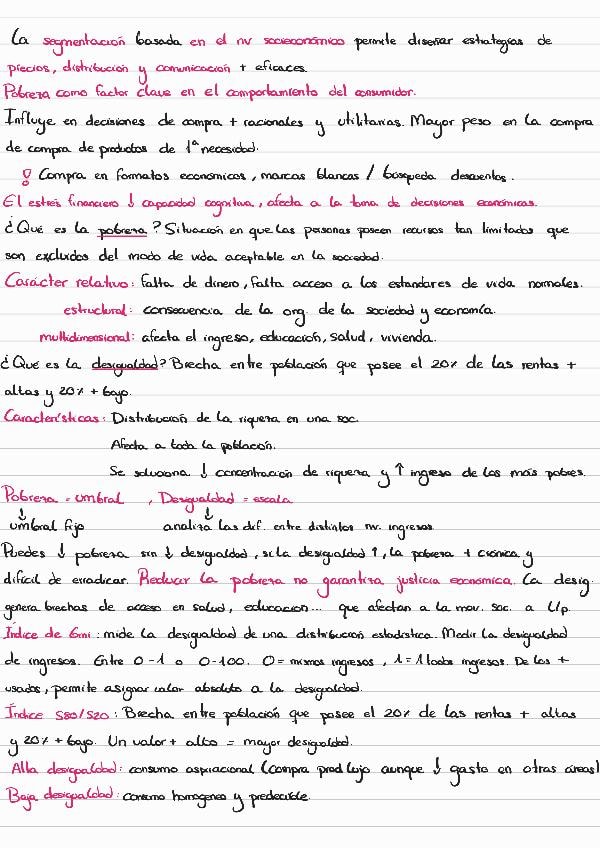 La segmentación basada en el nv socioeconómico permite diseñar estrategias de
precios, distribución y comunicación + eficaces.
Pobreza como factor clave en el comportamiento del consumidor.
Influye en decisiones de compra + racionales y utilitarias. Mayor peso en la compra
de compra de productos de 1ª necesidad.
! Compra en formatos economicos, marcas blancas / búsqueda descuentos.
El estrés financiero ↓ capacidad cognitiva, afecta a la toma de decisiones económicas.
¿Qué es la pobreza? Situación en que las personas poseen recursos tan limitados que
son excluidos del modo de vida aceptable en la sociedad.
Carácter relativo: falta de dinero, falta acceso a los estandares de vida normales.
estructural: consecuencia de la org. de la sociedad y economía.
multidimensional: afecta el ingreso, educación, salud, vivienda.
¿Qué es la desigualdad? Brecha entre población que posee el 20% de las rentas +
altas y 20% + bajo.
Características: Distribución de la riqueza en una soc.
Afecta a toda la población.
Se soluciona ↓ concentración de riqueza y ↑ ingreso de los más pobres.
Pobreza = umbral , Desigualdad = escala
↓ ↓
umbral fijo analiza las dif. entre distintos nv. ingresos
Puedes ↓ pobreza sin ↓ desigualdad, si la desigualdad ↑, la pobreza + crónica y
difícil de erradicar. Reducir la pobreza no garantiza justicia económica. La desig.
genera brechas de acceso en salud, educación... que afectan a la mov. soc. a L/p.
Índice de Gini: mide la desigualdad de una distribución estadística. Medir la desigualdad
de ingresos. Entre 0-1 o 0-100. 0= mismos ingresos, 1= 1 todos ingresos. De los +
usados, permite asignar valor absoluto a la desigualdad.
Índice S80/S20: Brecha entre población que posee el 20% de las rentas + altas
y 20% + bajo. Un valor + alto = mayor desigualdad.
Alta desigualdad: consumo aspiracional (compra prod lujo aunque ↓ gasto en otras áreas)
Baja desigualdad: consumo homogeneo y predecible.